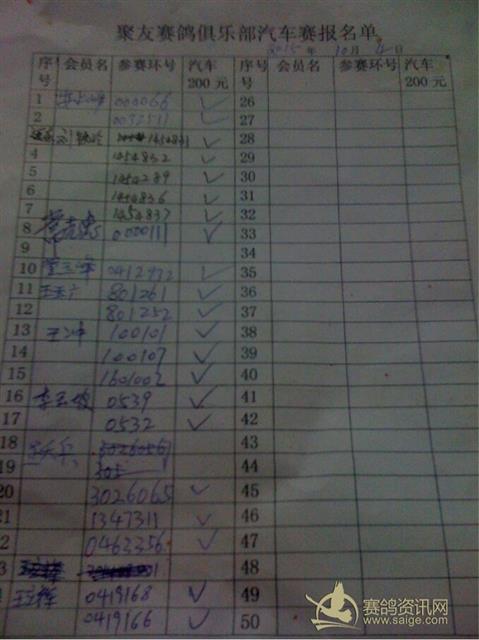 聚友赛鸽俱乐部汽车赛报名单
2015年10月4日
序号 会员名 参赛环号 汽车200元 序号 会员名 参赛环号 汽车200元
1 000066 ✓ 26
2 0032511 ✓ 27
1454831 ✓ 28
4 1454832 ✓ 29
5 1454289 ✓ 30
6 1454836 ✓ 31
7 1454837 ✓ 32
8 000111 ✓ 33
9 34
10 0412932 ✓ 35
11 801261 ✓ 36
12 801252 ✓ 37
13 王冲 100101 ✓ 38
14 100107 ✓ 39
15 1601002 ✓ 40
16 0539 ✓ 41
17 0532 ✓ 42
18 43
19 44
20 3026065 ✓ 45
21 1347311 ✓ 46
0463356 ✓ 47
48
0419168 ✓ 49
0419166 ✓ 50
赛鸽资讯网
www.saige.com